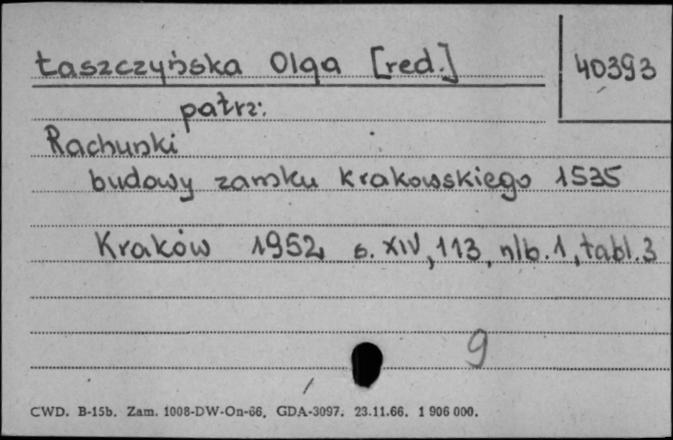 Łaszczyńska Olga [red.] 40393
patrz:
Rachunki
budowy zamku krakowskiego 1535
Kraków 1952, s. XIV, 113, nlb. 1, tabl. 3
9
CWD. B-15b. Zam. 1008-DW-On-66. GDA-3097. 23.11.66. 1 906 000.